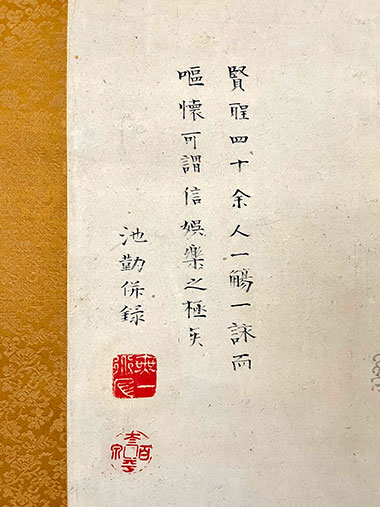 賢聖四十余人一觴一詠而
嘔懐可謂信娯樂之極矣
池勤併録